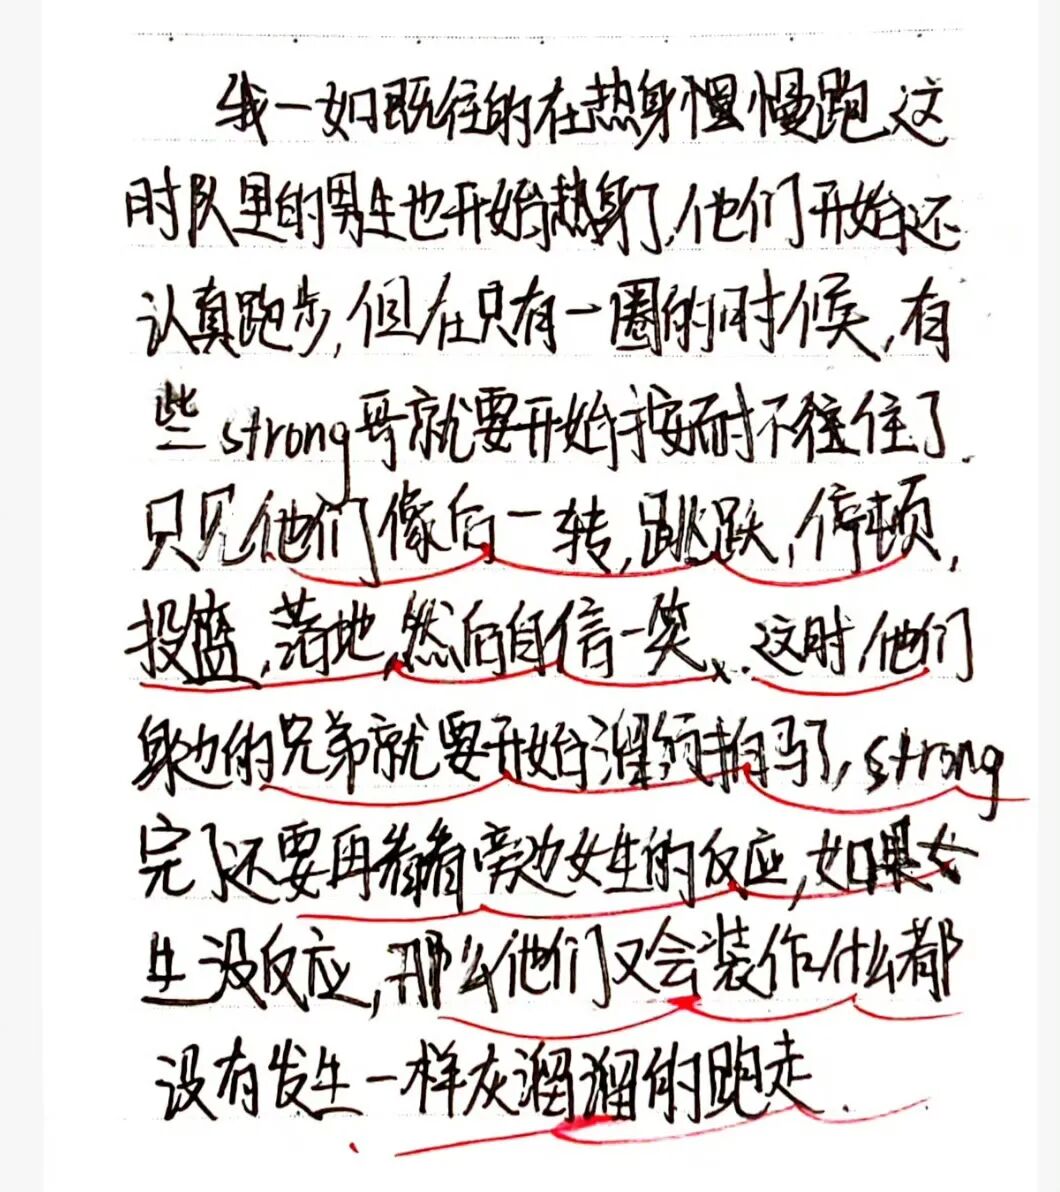 我一如既往的在热身慢慢跑这
时队里的男生也开始热身了,他们开始还
认真跑步,但在只有一圈的时候,有
些strong哥就要开始按耐不往住了.
只见他们像后一转,跳跃,停顿,
投篮,落地,然后自信一笑、.这时,他们
身边的兄弟就要开始溜须拍马了,strong
完了还要再看看旁边女生的反应,如果女
生没反应,那么他们又会装作什么都
没有发生一样灰溜溜的跑走.